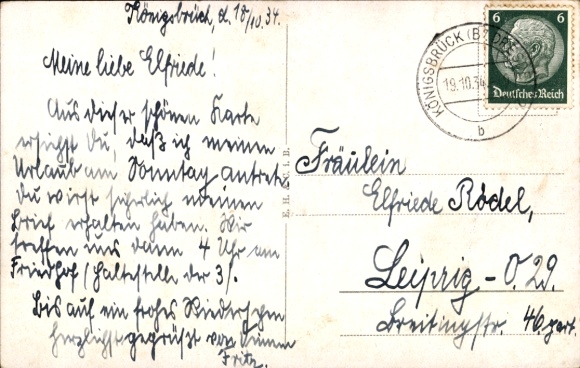 Königsbrück, d. 18/10.34.
Meine liebe Elfriede!
Aus dieser schönen Karte
ersiehst Du, daß ich meinen
Urlaub am Sonntag antrete.
Du wirst sicherlich meinen
Brief erhalten haben. Wir
treffen uns dann 4 Uhr am
Friedhof (Haltestelle der 3).
Bis auf ein frohes Wiedersehen
herzlichst gegrüßt von Deinem
Fritz.
E. H. & C. i. B.
KÖNIGSBRÜCK (BZ. DRESDEN)
19.10.34
b
6 6
Deutsches Reich
Fräulein
Elfriede Rödel,
Leipzig-O. 29.
Breitingstr. 46 part.